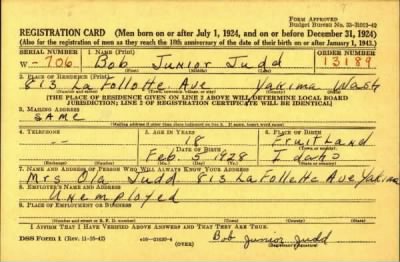 Form Approved
Budget Bureau No. 33-R013-42
REGISTRATION CARD (Men born on or after July 1, 1924, and on or before December 31, 1924)
(Also for the registration of men as they reach the 18th anniversary of the date of their birth on or after January 1, 1943.)
SERIAL NUMBER 1. NAME (Print) ORDER NUMBER
W- 706 Bob Junior Judd 13189
(First) (Middle) (Last)
2. PLACE OF RESIDENCE (Print)
813 La Follette Ave Yakima Wash
(Number and street) (Town) (County) (State)
[THE PLACE OF RESIDENCE GIVEN ON LINE 2 ABOVE WILL DETERMINE LOCAL BOARD
JURISDICTION; LINE 2 OF REGISTRATION CERTIFICATE WILL BE IDENTICAL]
3. MAILING ADDRESS
SAME
[Mailing address if other than place indicated on line 2. If same, insert word same]
4. TELEPHONE 5. AGE IN YEARS 6. PLACE OF BIRTH
18 Fruitland
DATE OF BIRTH (Town or county)
Feb. 5 1928 Idaho
(Exchange) (Number) (Mo.) (Day) (Yr.) (State or country)
7. NAME AND ADDRESS OF PERSON WHO WILL ALWAYS KNOW YOUR ADDRESS
Mrs Ola Judd 813 La Follette Ave Yakima
8. EMPLOYER'S NAME AND ADDRESS
Unemployed
9. PLACE OF EMPLOYMENT OR BUSINESS
(Number and street or R. F. D. number) (Town) (County) (State)
I AFFIRM THAT I HAVE VERIFIED ABOVE ANSWERS AND THAT THEY ARE TRUE.
DSS Form 1 (Rev. 11-16-42) (OVER) Bob Junior Judd
(Registrant's signature)